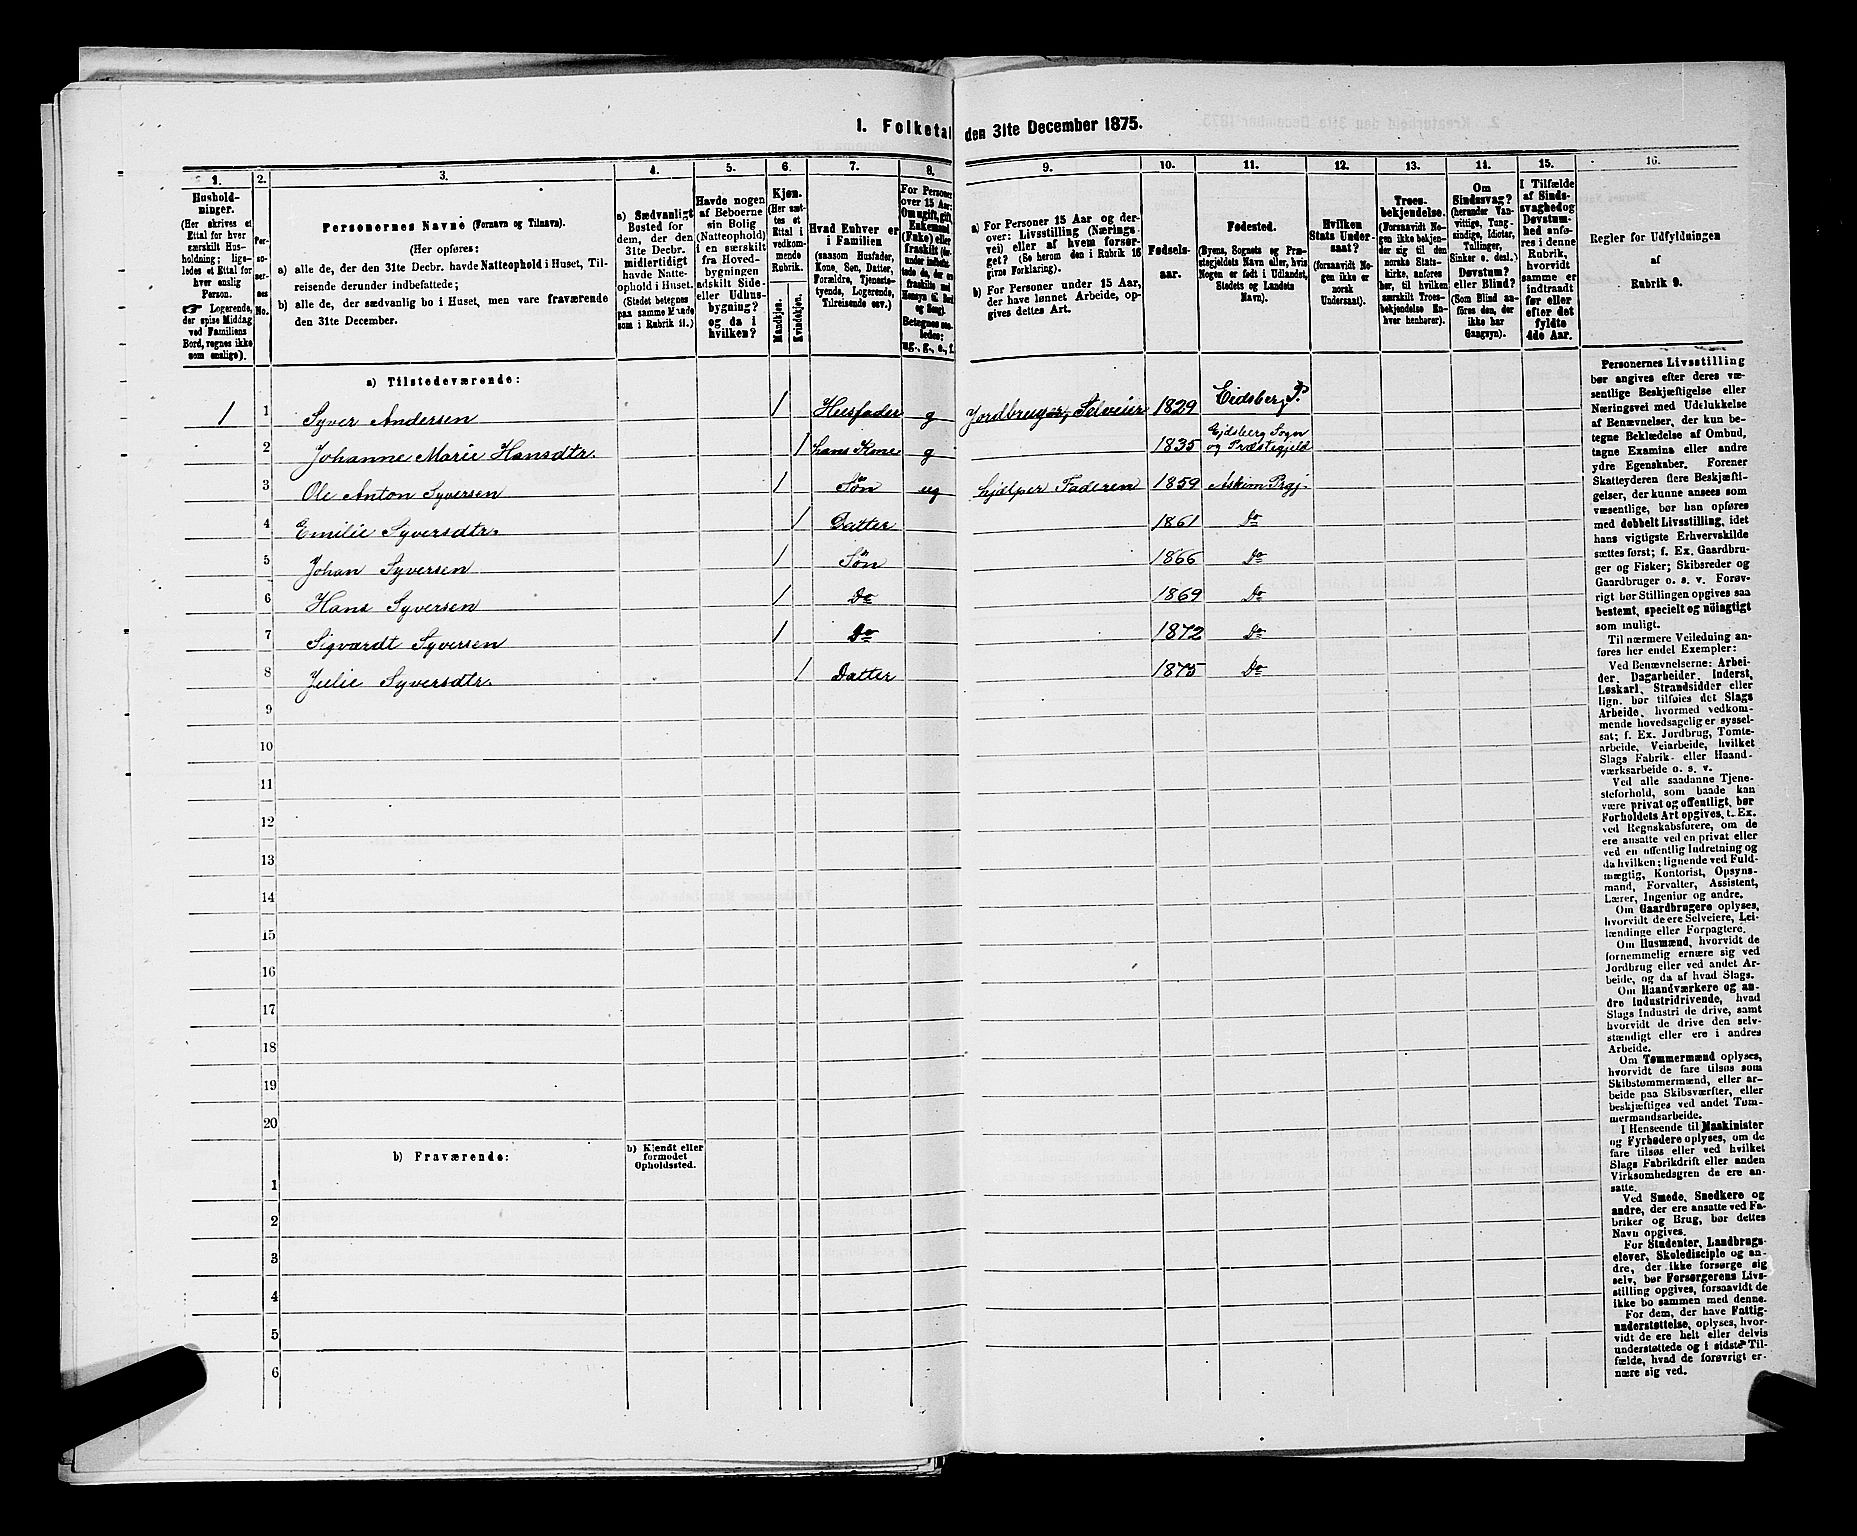 1. Folketal den 31te December 1875.
1. 2. 3. 4. 5. 6. 7. 8. 9. 10. 11. 12. 13. 14. 15. 16.
Hushold-
ninger.
(Her skrives et
Ettal for hver
særskilt Hus-
holdning; lige-
ledes et Ettal for
hver enslig
Person.
☞ Logerende,
der spise Middag
ved Familiens
Bord, regnes ikke
som enslige).
Per-
so-
ner-
nes
No.
Personernes Navne (Fornavn og Tilnavn).
(Her opføres:
a) alle de, der den 31te Decbr. havde Natteophold i Huset, Til-
reisende derunder indbefattede;
b) alle de, der sædvanlig bo i Huset, men vare fraværende
den 31te December.
a) Sædvanligt
Bosted for
dem, der den
31te Decbr.
midlertidigt
havde Natte-
ophold i Huset.
(Stedet betegnes
paa samme Maade
som i Rubrik 11.)
Havde nogen
af Beboerne
sin Bolig
(Natteophold)
i en særskilt
fra Hoved-
bygningen
adskilt Side-
eller Udhus-
bygning?
og da i
hvilken?
Kjøn.
(Her sæt-
tes et
Ettal i
vedkom-
mende
Rubrik.
Mandkjøn.
Kvindekjøn.
Hvad Enhver er
i Familien
(saasom Husfader,
Kone, Søn, Datter,
Forældre, Tjeneste-
tyende, Logerende,
Tilreisende osv.)
For Personer
over 15 Aar:
Om ugift, gift,
Enkemand
(Enke) eller
fraskilt
Betegnes saa-
ledes:
ug., g., e., f.
a) For Personer 15 Aar og der-
over: Livsstilling (Nærings-
vei) eller af hvem forsør-
get? (Se herom den i Rubrik 16
givne Forklaring).
b) For Personer under 15 Aar,
der have lønnet Arbeide, op-
gives dettes Art.
Fødsels-
aar.
Fødested.
(Byens, Sognets og Præ-
stegjeldets Navn eller, hvis
Nogen er født i Udlandet,
Stedets og Landets
Navn).
Hvilken
Stats Under-
saat?
(forsaavidt No-
gen ikke er
norsk
Undersaat).
Troes-
bekjendelse.
(Forsaavidt No-
gen ikke bekjen-
der sig til den
norske Stats-
kirke, anføres
her, til hvilken
særskilt Troes-
bekjendelse En-
hver henhører).
Om
Sindssvag?
(herunder Van-
vittige, Tung-
sindige, Idioter,
Tullinger,
Sinker o. desl.)
Døvstum?
eller Blind?
(Som Blind an-
føres den, der
ikke har
Gangsyn).
I Tilfælde
af Sinds-
svaghed og
Døvstum-
hed anfø-
res i denne
Rubrik,
hvorvidt
samme er
indtraadt
før eller
efter det
fyldte
4de Aar.
Regler for Udfyldningen
af
Rubrik 9.
a) Tilstedeværende:
1 1 Syver Andersen 1 Husfader g Jordbruger, Selveier 1829 Eidsberg P.
2 Johanne Marie Hansdtr. 1 hans Kone g 1835 Ejdsberg Sogn og Præstegjeld
3 Ole Anton Syversen 1 Søn ug hjælper Faderen 1859 Askim Prgj.
4 Emilie Syversdtr. 1 Datter 1861 Do
5 Johan Syversen 1 Søn 1866 Do
6 Hans Syversen 1 Do 1869 Do
7 Sigvardt Syversen 1 Do 1872 Do
8 Julie Syversdtr. 1 Datter 1875 Do
9
10
11
12
13
14
15
16
17
18
19
20
b) Fraværende:
b) Kjendt eller
formodet
Opholdssted.
1
2
3
4
5
6
Personernes Livsstilling
bør angives efter deres væ-
sentlige Beskjæftigelse eller
Næringsvei med Udelukkelse
af Benævnelser, der kun be-
tegne Beklædelse af Ombud,
tagne Examina eller andre
ydre Egenskaber. Forener
Skatteyderen flere Beskjæfti-
gelser, der kunne ansees som
væsentlige, bør han opføres
med dobbelt Livsstilling, idet
hans vigtigste Erhvervskilde
sættes først; f. Ex. Gaardbru-
ger og Fisker; Skibsreder og
Gaardbruger o. s. v. Forøv-
rigt bør Stillingen opgives saa
bestemt, specielt og nöiagtigt
som muligt.
Til nærmere Veiledning an-
føres her endel Exempler:
Ved Benævnelserne: Arbei-
der, Dagarbeider, Inderst,
Løskarl, Strandsidder eller
lign. bør tilføies det Slags
Arbeide, hvormed vedkom-
mende hovedsagelig er syssel-
sat; f. Ex. Jordbrug, Tomte-
arbeide, Veiarbeide, hvilket
Slags Fabrik- eller Haand-
værksarbeide o. s. v.
Ved alle saadanne Tjene-
steforhold, som baade kan
være privat og offentligt, bør
Forholdets Art opgives, t. Ex.
ved Regnskabsførere, om de
ere ansatte ved en privat eller
ved en offentlig Indretning og
da hvilken; lignende ved Fuld-
mægtig, Kontorist, Opsyns-
mand, Forvalter, Assistent,
Lærer, Ingeniør og andre.
Om Gaardbrugere oplyses,
hvorvidt de ere Selveiere, Lei-
lændinge eller Forpagtere.
Om Husmænd, hvorvidt de
fornemmelig ernære sig ved
Jordbrug eller ved andet Ar-
beide, og da af hvad Slags.
Om Haandværkere og an-
dre Industridrivende, hvad
Slags Industri de drive, samt
hvorvidt de drive den selv-
stændigt eller ere i andres
Arbeide.
Om Tømmermænd oplyses,
hvorvidt de fare tilsøs som
Skibstømmermænd, eller ar-
beide paa Skibsværfter, eller
beskjæftiges ved andet Tøm-
mermandsarbeide.
I Henseende til Maskinister
og Fyrbødere oplyses, om de
fare tilsøs eller ved hvilket
Slags Fabrikdrift eller anden
Virksomhedsgren de ere an-
satte.
Ved Smede, Snedkere og
andre, der ere ansatte ved Fa-
briker og Brug, bør dettes
Navn opgives.
For Studenter, Landbrugs-
elever, Skoledisciple og an-
dre, der ikke forsørge sig
selv, bør Forsørgerens Livs-
stilling opgives, forsaavidt de
ikke bo sammen med denne.
For dem, der have Fattig-
understøttelse, oplyses, hvor-
vidt de ere helt eller delvis
understøttede og i sidste Til-
fælde, hvad de forøvrigt er-
nære sig ved.